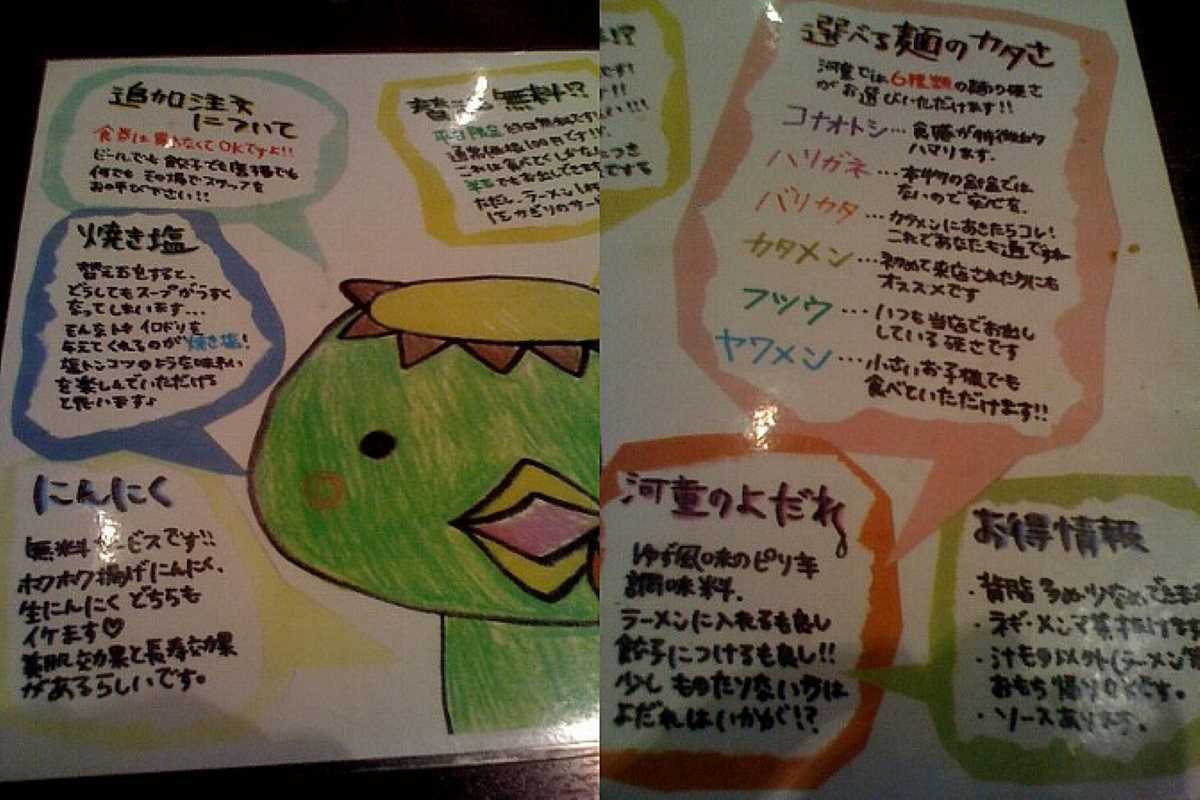 追加注文
について
食券は買わなくてOKですよ!!
ビールでも餃子でも唐揚でも
何でもその場でスタッフを
お呼び下さい!!
無料!?
平日限定
通常価格100円です
焼き塩
替え玉すると、
どうしてもスープがうすく
なってしまいます…
そんなトキイロドリを
与えてくれるのが焼き塩!
塩トンコツのような味わい
を楽しんでいただける
と思います♪
にんにく
無料サービスです!!
ホクホク揚げにんにく、
生にんにくどちらも
イケます♡
美肌効果と長寿効果
があるらしいです。
選べる麺のカタさ
河童では6種類の麺の硬さ
がお選びいただけます!!
コナオトシ…食感が特徴的な
ハマります。
ハリガネ…本物の針金では
ないので安心を。
バリカタ…カタメンにあきたらコレ!
これであなたも通ですね
カタメン…初めて来店された方にも
オススメです
フツウ…いつも当店でお出し
している硬さです
ヤワメン…小さいお子様でも
食べていただけます!!
河童のよだれ
ゆず風味のピリ辛
調味料。
ラーメンに入れるも良し
餃子につけるも良し!!
少しものたりない方は
よだれはいかが!?
お得情報
・背脂多め少なめで
・ネギ・メンマ
・汁もの以外(ラーメン
おもち帰りOKです。
・ソースあります。